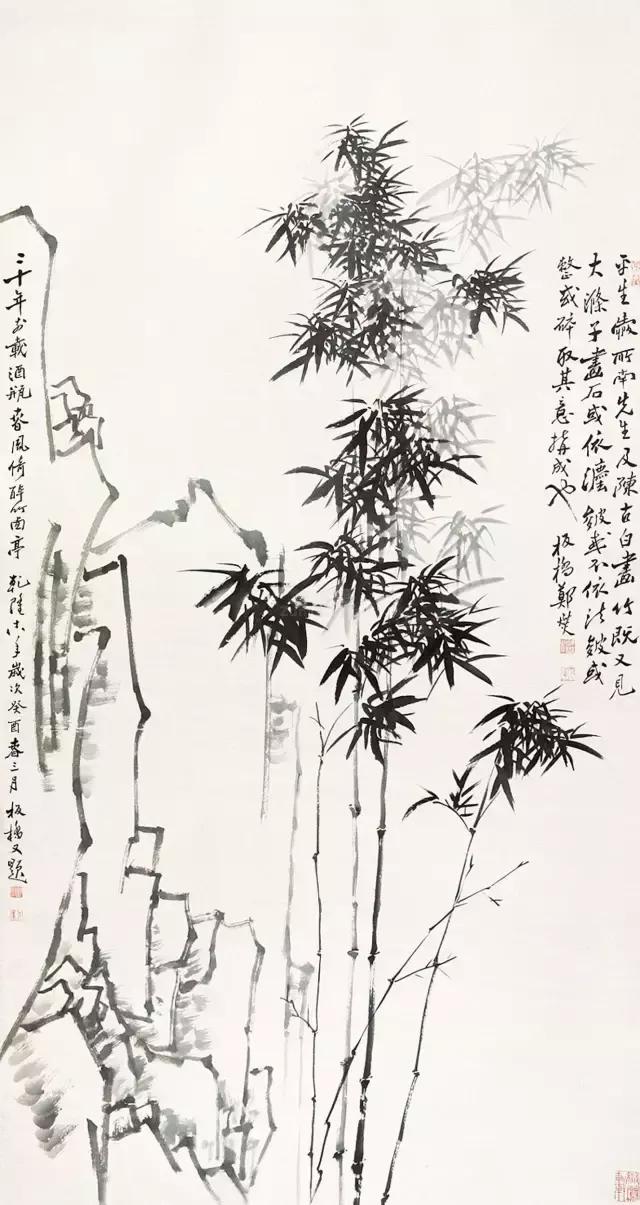 平生愛所南先生及陳古白畫竹既又見
大滌子畫石或依灋皴或不依法皴或
整或碎取其意搆成也 板橋鄭燮
三十年前載酒瓶春風倚醉竹西亭 乾隆十八年歲次癸酉春三月 板橋又題